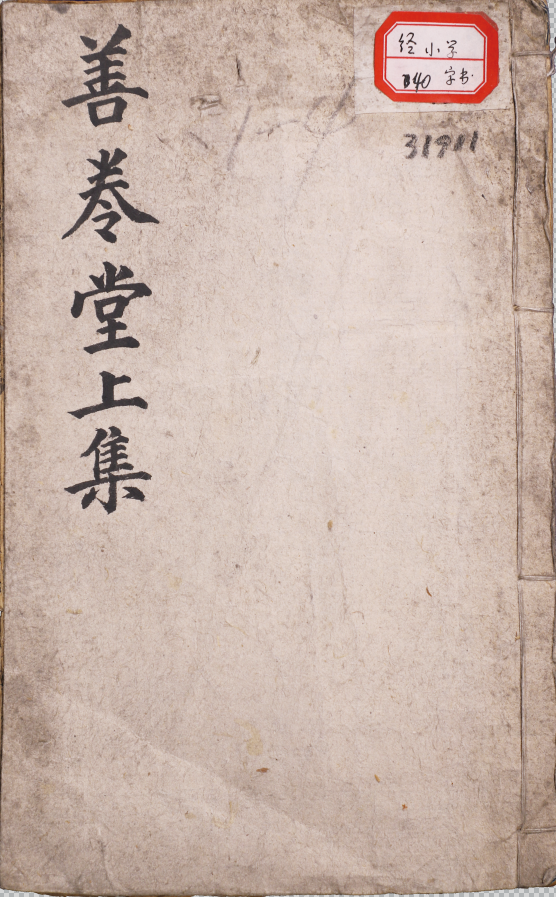 善卷堂上集
经 小学
1340 字书
31911